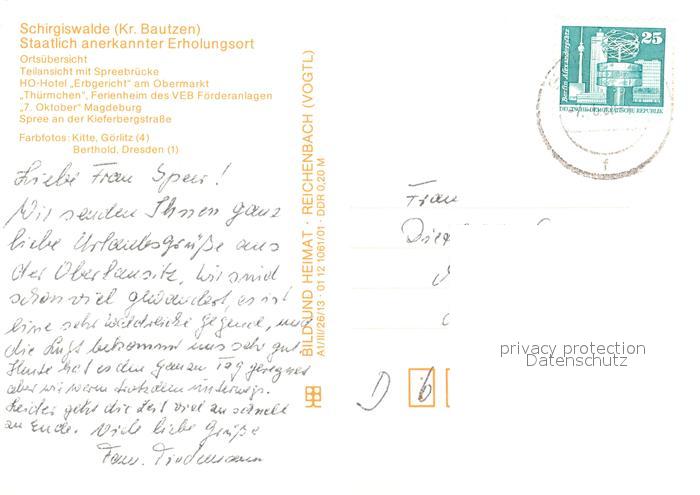 Schirgiswalde (Kr. Bautzen)
Staatlich anerkannter Erholungsort
Ortsübersicht
Teilansicht mit Spreebrücke
HO-Hotel „Erbgericht" am Obermarkt
„Thürmchen", Ferienheim des VEB Förderanlagen
„7. Oktober" Magdeburg
Spree an der Kieferbergstraße
Farbfotos: Kitte, Görlitz (4)
Berthold, Dresden (1)
Liebe Frau Speer!
Wir senden Ihnen ganz
liebe Urlaubsgrüße aus
der Oberlausitz. Wir sind
schon viel gewandert, es ist
eine sehr waldreiche Gegend, und
die Luft bekommt uns sehr gut.
Heute hat es den ganzen Tag geregnet
aber wir waren trotzdem unterwegs.
Leider geht die Zeit viel zu schnell
zu Ende. Viele liebe Grüße
Fam.
BILD UND HEIMAT · REICHENBACH (VOGTL)
A1/III/26/13 · 01 12 1061/01 · DDR 0,20 M
25
Berlin, Alexanderplatz
DEUTSCHE DEMOKRATISCHE REPUBLIK
f
Frau
D
privacy protection
Datenschutz